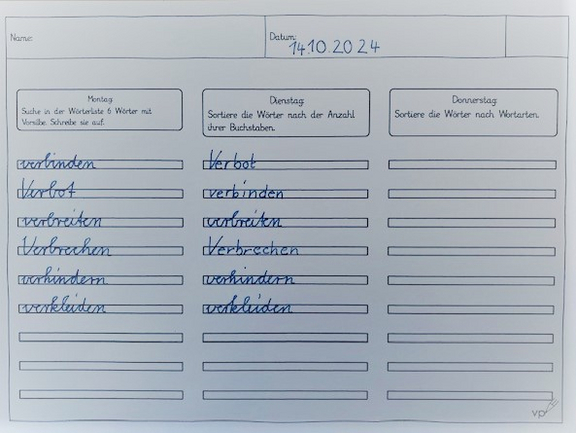 Name:
Datum:
14.10.2024
Montag:
Suche in der Wörterliste 6 Wörter mit
Vorsilbe. Schreibe sie auf.
verbinden
Verbot
verbreiten
Verbrechen
verhindern
verkleiden
Dienstag:
Sortiere die Wörter nach der Anzahl
ihrer Buchstaben.
Verbot
verbinden
verbreiten
Verbrechen
verhindern
verkleiden
Donnerstag:
Sortiere die Wörter nach Wortarten.
vp